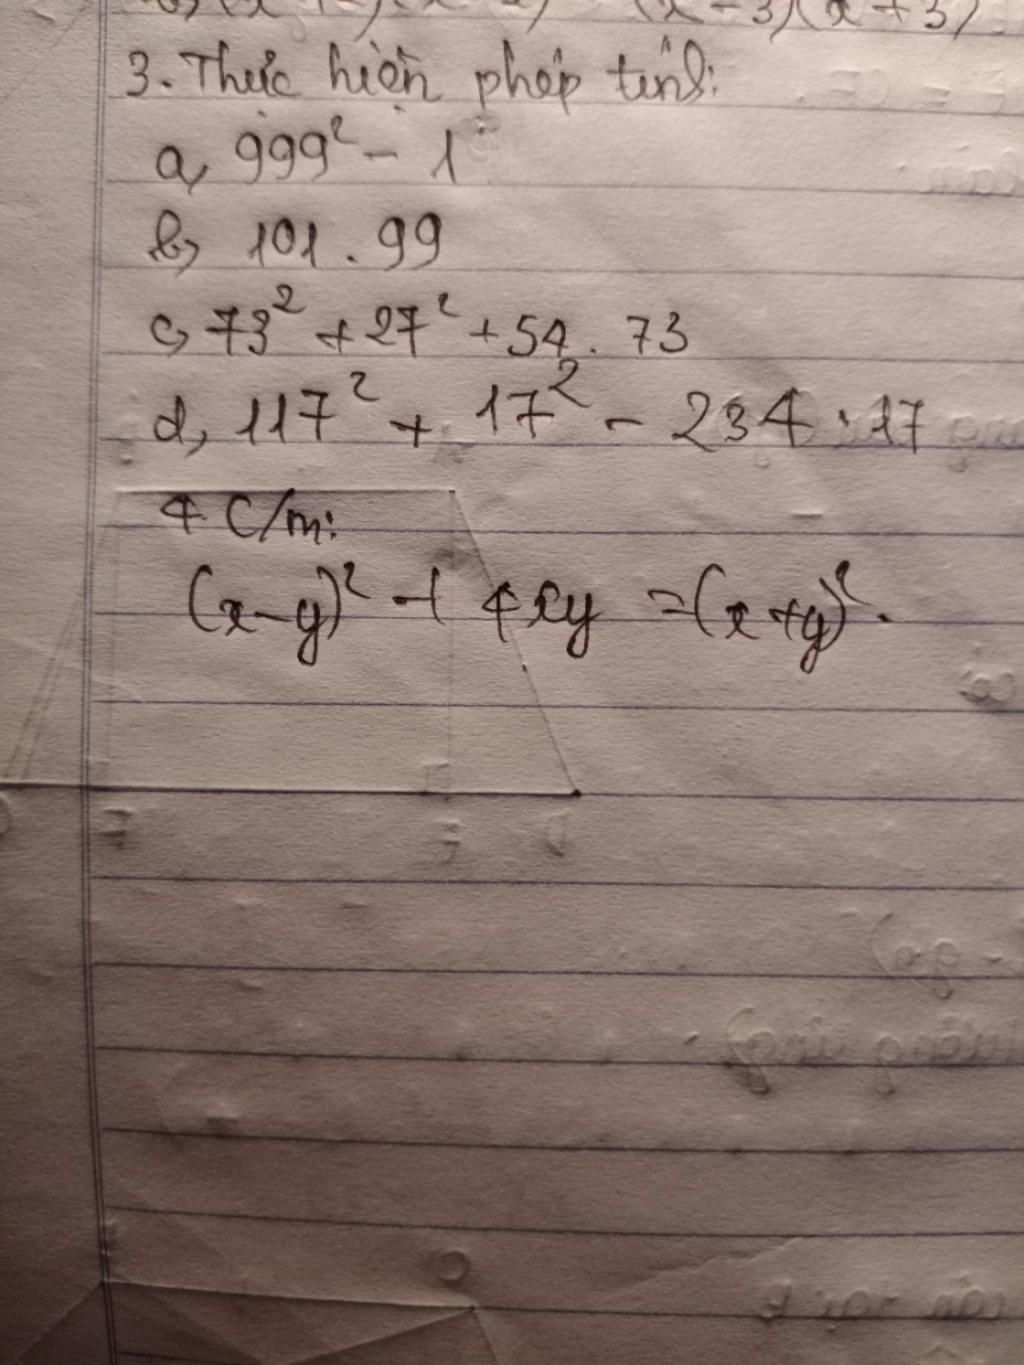 (x-3)(x+3)
3. Thực hiện phép tính:
a, 999² - 1
b, 101 . 99
c, 73² + 27² + 54 . 73
d, 117² + 17² - 234 . 17
4 C/m:
(x-y)² + 4xy = (x+y)².